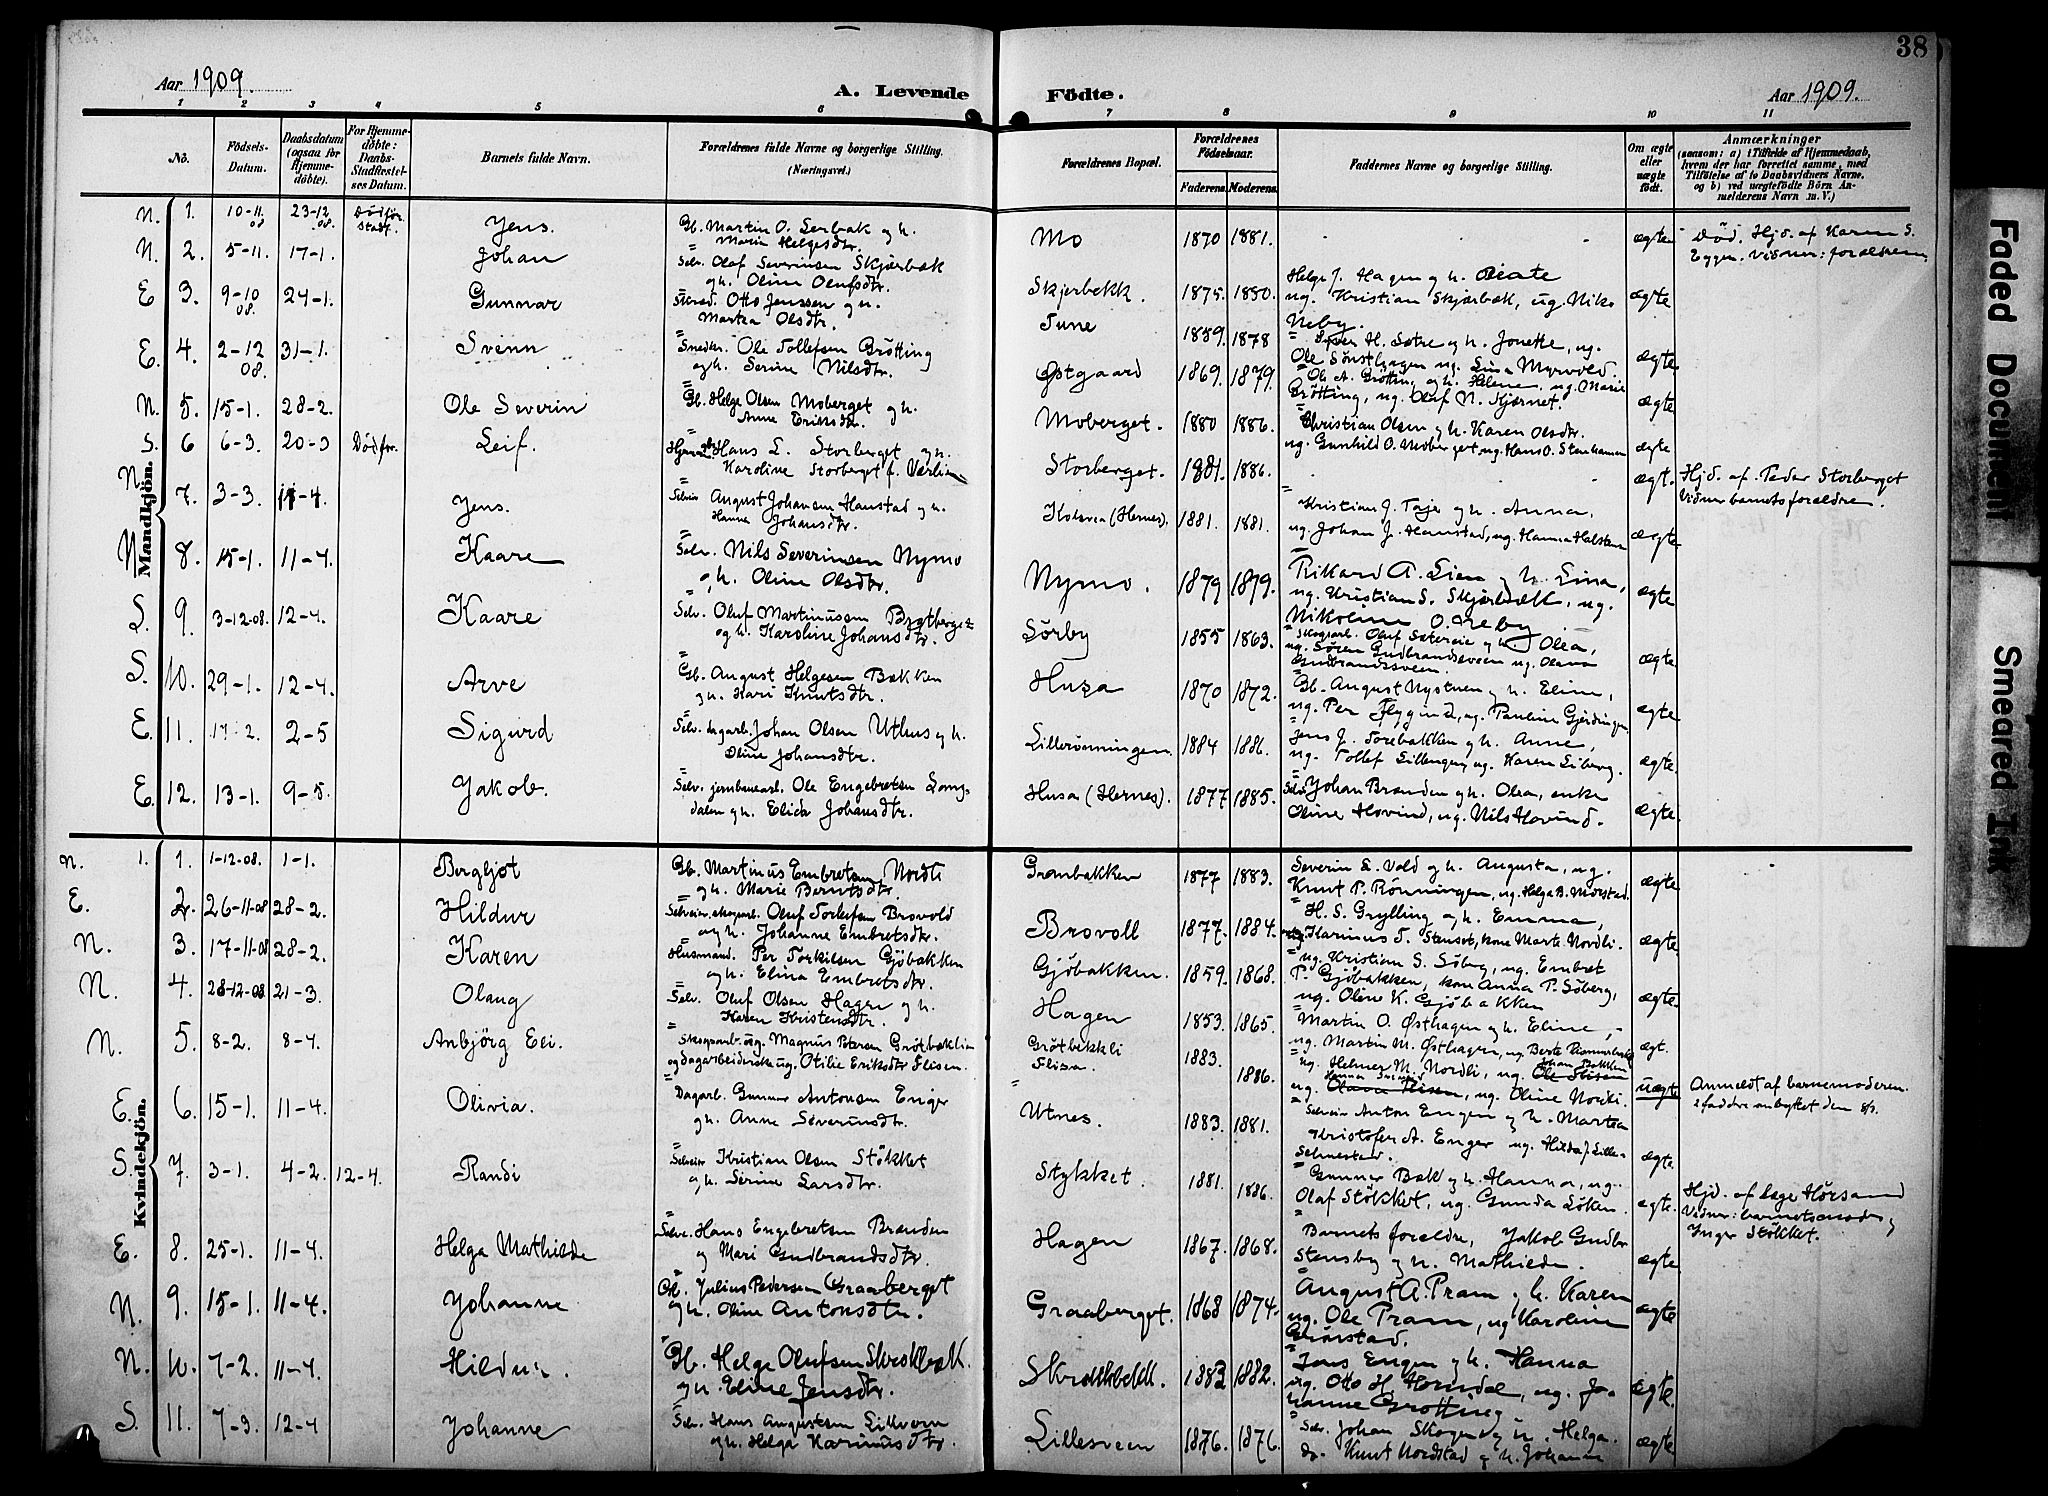 38
Aar 1909.
A. Levende Födte.
Aar 1909.
1 2 3 4 5 6 7 8 9 10 11
No.
Födsels-Datum.
Daabsdatum (ogsaa for Hjemme-döbte).
For Hjemme-döbte: Daabs-Stadfæstel-ses Datum.
Barnets fulde Navn.
Forældrenes fulde Navne og borgerlige Stilling.
(Næringsvei.)
Forældrenes Bopæl.
Forældrenes Födselsaar.
Faderens. Moderens.
Faddernes Navne og borgerlige Stilling.
Om ægte eller uægte födt.
Anmærkninger
(saasom: a) i Tilfælde af Hjemmedaab, hvem der har forrettet samme, med Tilföielse af to Daabsvidners Navne, og b) ved uægtefödte Börn An-melderens Navn m. V.)
Mandkjön.
N. 1. 10-11 08 23-12 08. Död før stadf. Jens. Gb. Martin O. og h. Marie Helgesdtr. Mo 1870 1881. ægte Död. Hjd. af Karen S. Eggen. Vidner: forældrene
N. 2. 5-11. 17-1. Johan Selv. Olaf Severinsen Skjærbæk og h. Oline Olufsdtr. Skjerbekk. 1875. 1880. Helge J. Hagen og h. Beate ug. Kristian Skjærbæk, ug. Niko Neby. ægte
E 3. 9-10 08. 24-1. Gunnar Otto Jenssen og h. Martea Olsdtr. Tune 1889. 1878 H. Sætre og h. Jonette, ug. Ole Sønsthagen ug. Lina Myrvold. ægte
E. 4. 2-12 08. 31-1. Svenn Snedker Ole Tollefsen Brötting og h. Serine Nilsdtr. Østgaard 1869. 1879. Ole A. Grötting og h. Helene, ug. Marie Grötting, ug. Olaf N. Kjernet. ægte
N. 5. 15-1. 28-2. Ole Severin Gb. Helge Olsen Moberget og h. Anne Eriksdtr. Moberget. 1880 1886. Christian Olsen og h. Karen Olsdtr. ug. Gunhild O. Moberget ug. Hans O. Stenhammer ægte
S. 6 6-3. 20-3 Död før. Leif. Hans L. Storberget og h. Karoline Storberget f. Værlien Storberget. 1881. 1886. ægt. Hjd. af Peder Storberget Vidner barnets forældre.
N. 7. 3-3. 11-4. Jens. Selveier August Johansen Hanstad og h. Hanna Johansdtr. (Hernes). 1881. 1881. Kristian J. og h. Anna, ug. Johan J. Hanstad, ug. Hanna Halstensen ægte
N 8. 15-1. 11-4. Kaare Selv. Nils Severinsen Nymo og h. Oline Olsdtr. Nymo. 1879 1879. Rikard A. Lien og h. Lina, ug. Kristian S. Skjærbæk, ug. Nikoline O. Neby. ægte
S. 9. 3-12-08. 12-4. Kaare Selv. Oluf Martinussen og h. Karoline Johansdtr. Sörby 1855 1863. Skogarb. Oluf Sætereie og h. Olea, ug. Søren Gudbrandsveen ug. Olava Gudbrandsveen. ægte
S. 10. 29-1. 12-4. Arve Gb. August Helgesen Bækken og h. Kari Knutsdtr. Husa 1870 1872. Gb. August Nystuen og h. Eline, ug. Per Flygind, ug. Pauline Gjerdingen ægte
E. 11. 17-2. 2-5 Sigurd Selv. dagarb. Johan Olsen Uthus og h. Oline Johansdtr. Lillerønningen. 1884 1886. Jens J. Torebakken og h. Anne, ug. Tollef Lillengen, ug. Karen Liberg. ægte
E. 12. 13-1. 9-5. Jakob. Selv. jernbanearb. Ole Engebretsen Lang-dalen og h. Elida Johansdtr. Husa (Hernes). 1877 1885. Selv. Johan Brænden og h. Olea, enke Oline Hovind, ug. Nils Hovind. ægte.
Kvindekjön.
N. 1. 1. 1-12-08. 1-1. Bergljot Gb. Martinus Embretsen Nordli og h. Marie Berntsdtr. Grønbakken 1877 1883. Severin E. Vold og h. Augusta, ug. Knut P. Rønningen, ug. Helga B. Morstad. ægte
E. 2. 26-11-08 28-2. Hildur Selveier, skogarb. Oluf Torkilsen Brovold og h. Johanne Embretsdtr. Brovoll 1877. 1884. H. S. Grylling og h. Emma, Karinus T. Stenset, kone Marte Nordli. ægte
N. 3. 17-11-08 28-2. Karen Husmand. Per Torkilsen Gjöbakken og h. Elina Embretsdtr. Gjöbakken. 1859. 1868. ug. Kristian S. Söberg, ug. Embret P. Gjöbakken, kone Anna P. Söberg, ug. Oline K. Gjöbakken ægte.
N. 4. 28-12-08 21-3. Olaug Selv. Oluf Olsen Hagen og h. Karen Kristensdtr. Hagen 1853. 1865. Martin O. Østhagen og h. Eline, ug. Martin M. Østhagen, ug. Berte ægt.
N. 5. 8-2. 8-4. Anbjörg Eli. Skogsarb. ug. Magnus Petersen Grötbækli og Dagarbeiderske ug. Otilie Eriksdtr Flisen. Grötbekkli Flisa. 1883. 1886. ug. Helmer M. Nordli, ug. Johan Bakken ug. ug. Oline Nordli. uægt Anmeldt af barnemoderen. 2 faddre ombyttet den 8/9.
E. 6. 15-1. 11-4. Olivia. Dagarb. Gunnar Antonsen Enger og h. Anne Severinsdtr. Utnes. 1883. 1881. Selveier Anton Engen og h. Martea Kristofer A. Enger ug. Hilda J. Lille-Selmestad. ægte.
S. 7. 3-1. 4-2. 12-4. Randi Selveier Kristian Olsen Stökket og h. Serine Larsdtr. Stykket. 1881. 1886. Gunner Bæk og h. Hanna, ug. Olaf Stökket, ug. Gunda Löken. ægte. Hjd. af læge Hørsand Vidner: barnets moder og Inger Stökket.
E. 8. 25-1. 11-4. Helga Mathilde Selv. Hans Engebretsen Brænden og Mari Gudbrandsdtr. Hagen 1867. 1868. Barnets forældre, Jakob Gudbr. Stensby og h. Mathilde. ægte
N. 9. 15-1. 11-4. Johanne Gb. Julius Pedersen Graaberget og h. Oline Antonsdtr. Graaberget. 1868 1874. August A. Pram og h. Karen ug. Ole Pram, ug Karoline Glörstad. ægte
N. 10. 7-2. 11-4. Hildur. Gb. Helge Olufsen og h. Eline Jensdtr. 1883 1882. Jens Engen og h. Hanna ug. Otto H. Horndal, ug. Jo-hanne Grötting ægte.
S. 11. 7-3. 12-4 Johanne Selv. Hans Augustsen Lilleveen og h. Helga Karinusdtr. Lillesveen 1876. 1876. Selv. Johan Skogen og h. Helga. do. Knut Nordstad og h. Johanne ægte
Faded Document
Smeared Ink